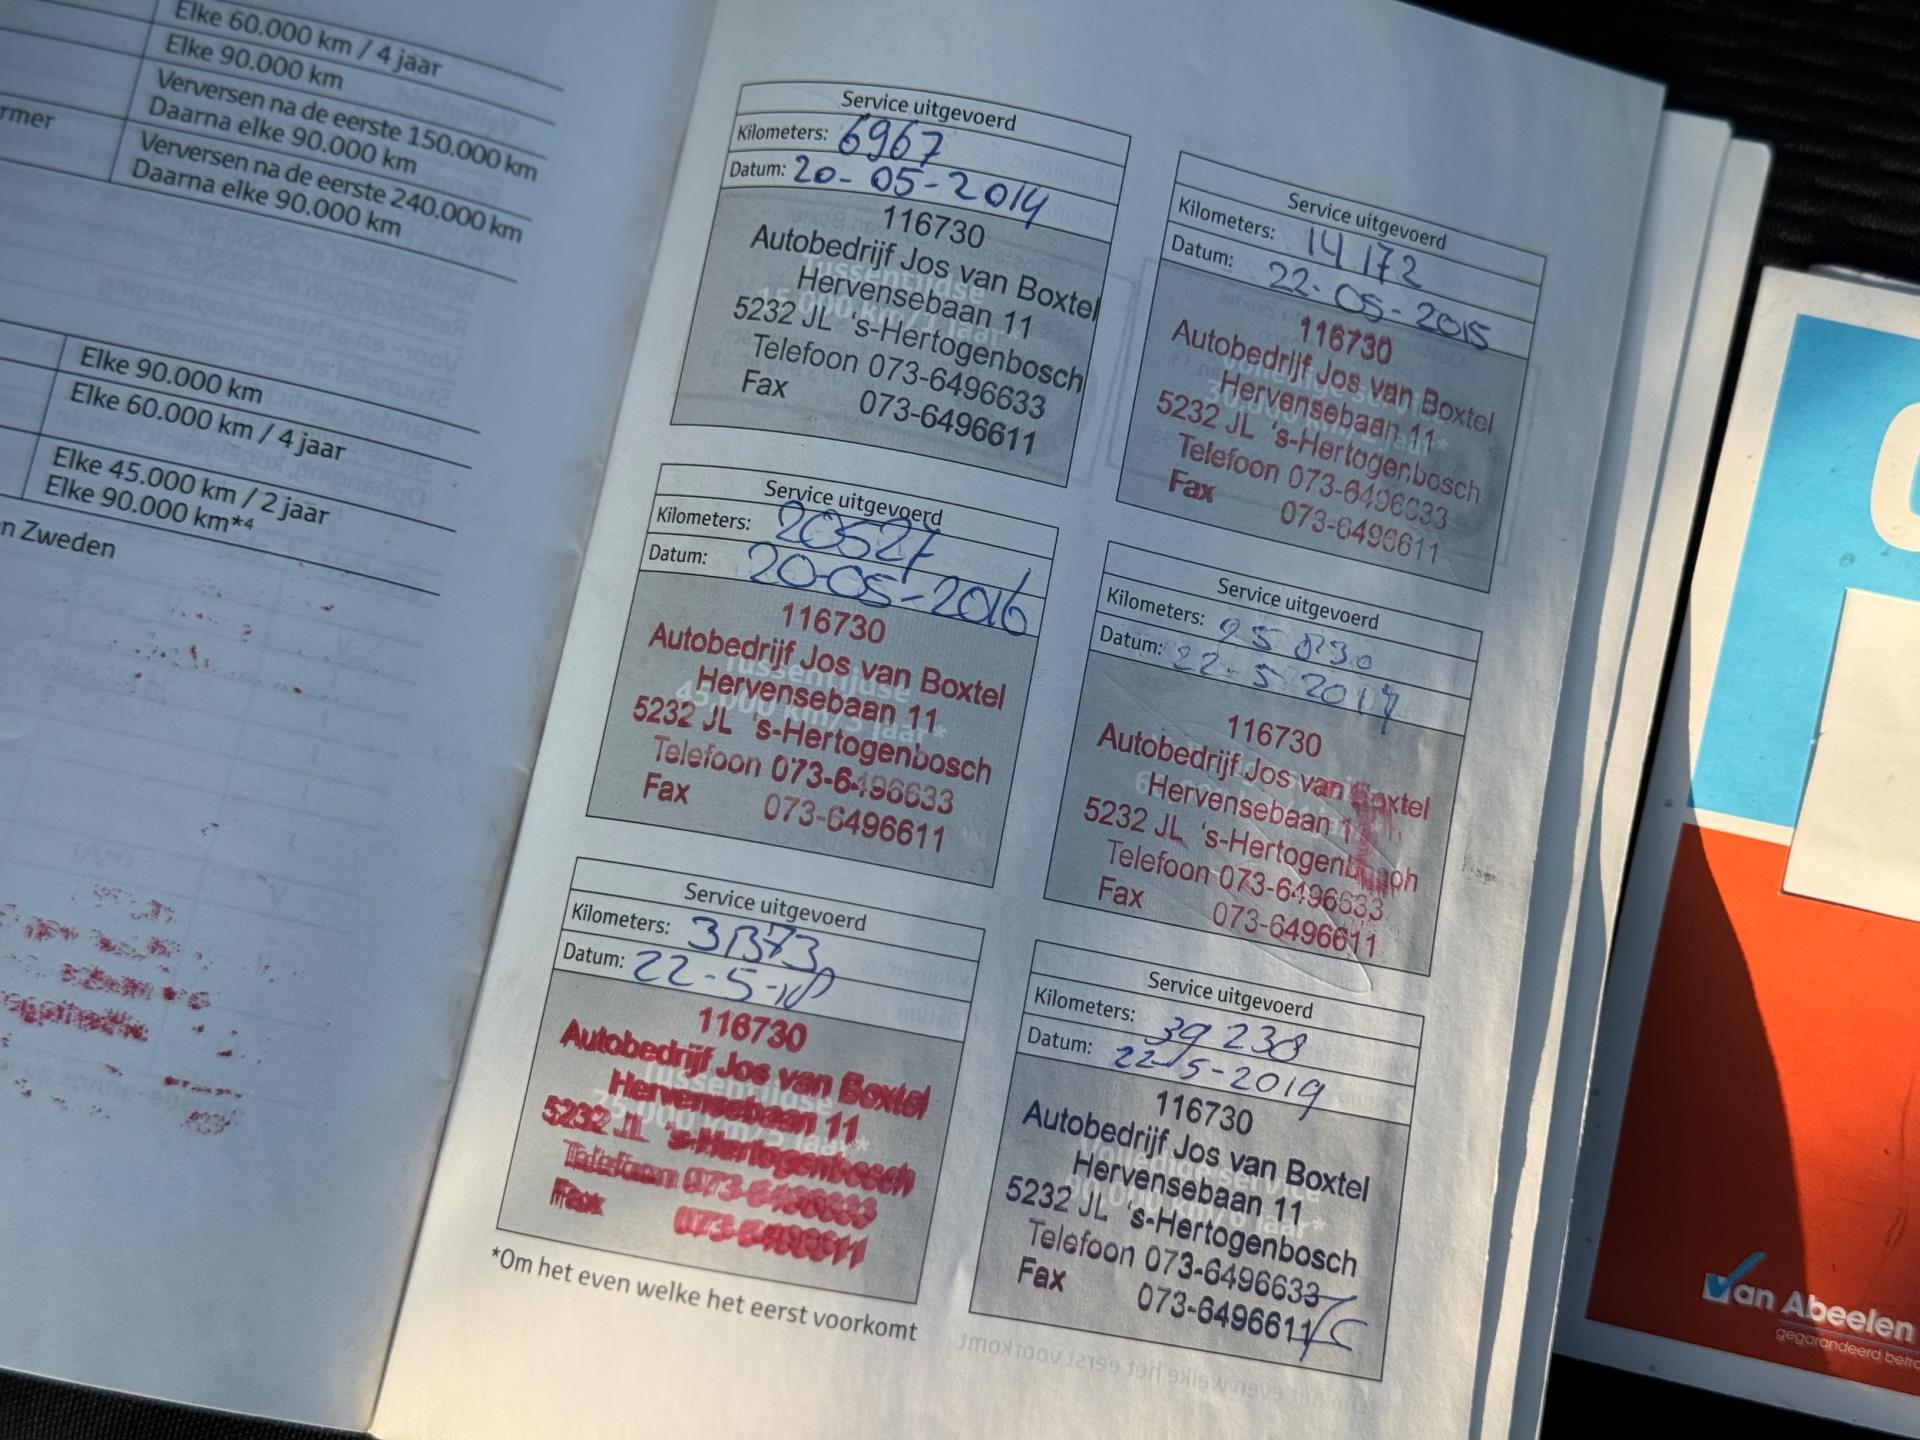 Elke 60.000 km / 4 jaar
Elke 90.000 km
Verversen na de eerste 150.000 km
Daarna elke 90.000 km
rmer
Verversen na de eerste 240.000 km
Daarna elke 90.000 km
Elke 90.000 km
Elke 60.000 km / 4 jaar
Elke 45.000 km / 2 jaar
Elke 90.000 km*⁴
n Zweden
Service uitgevoerd
Kilometers: 6967
Datum: 20-05-2014
116730
Autobedrijf Jos van Boxtel
Hervensebaan 11
5232 JL 's-Hertogenbosch
Telefoon 073-6496633
Fax 073-6496611
Service uitgevoerd
Kilometers: 14172
Datum: 22-05-2015
116730
Autobedrijf Jos van Boxtel
Hervensebaan 11
5232 JL 's-Hertogenbosch
Telefoon 073-6496633
Fax 073-6496611
Service uitgevoerd
Kilometers: 20527
Datum: 20-05-2016
116730
Autobedrijf Jos van Boxtel
Hervensebaan 11
5232 JL 's-Hertogenbosch
Telefoon 073-6496633
Fax 073-6496611
Service uitgevoerd
Kilometers: 25 830
Datum: 22-5-2017
116730
Autobedrijf Jos van Boxtel
Hervensebaan 11
5232 JL 's-Hertogenbosch
Telefoon 073-6496633
Fax 073-6496611
Service uitgevoerd
Kilometers:
Datum: 22-5-18
116730
Autobedrijf Jos van Boxtel
Hervensebaan 11
5232 JL 's-Hertogenbosch
Telefoon 073-6496633
Fax 073-6496611
Service uitgevoerd
Kilometers: 39 238
Datum: 22-5-2019
116730
Autobedrijf Jos van Boxtel
Hervensebaan 11
5232 JL 's-Hertogenbosch
Telefoon 073-6496633
Fax 073-6496611
*Om het even welke het eerst voorkomt
Van Abeelen
gegarandeerd